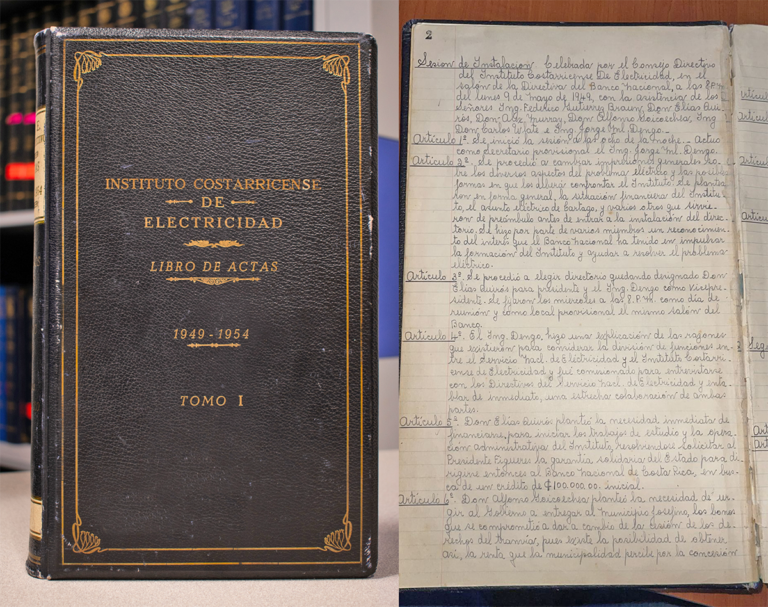 INSTITUTO COSTARRICENSE
DE
ELECTRICIDAD
LIBRO DE ACTAS
1949 - 1954
TOMO I
2
Sesion de Instalacion Celebrada por el Consejo Directivo
del Instituto Costarricense De Electricidad, en el
salon de la Directiva del Banco Nacional, a las 8 P.M.
del lunes 9 de Mayo de 1949, con la asistencia de los
Señores Ing. Federico Gutierrez Braun, Don Elias Qui-
rós, Don Alex Murray, Don Alfonso Goicoechea, Ing
Don Carlos e Ing. Jorge Ml. Dengo.
Artículo 1º. Se inició la sesion a las ocho de la noche.- Actuo
como Secretario provisional el Ing. Jorge Ml. Dengo.
Artículo 2º. Se procedió a cambiar impresiones generales so-
bre los diversos aspectos del problema eléctrico y las posibles
formas en que los deberá confrontar el Instituto. Se plantea-
ron en forma general, la situación financiera del Institu-
to, el asunto eléctrico de Cartago, y varios otros que sirvie-
ron de preámbulo antes de entrar a la instalación del direc-
torio. Se hizo por parte de varios miembros un reconocimien-
to del interés que el Banco Nacional ha tenido en impulsar
la formación del Instituto y ayudar a resolver el problema
eléctrico.
Artículo 3º. Se procedió a elegir directorio quedando designado Don
Elias Quirós para presidente y el Ing. Dengo como vicepre-
sidente. Se fijaron los miercoles a las 8 P.M. como día de
reunión y como local provisional el mismo salon del
Banco.
Artículo 4º. El Ing. Dengo, hizo una explicación de las razones
que existieron para considerar la división de funciones en-
tre el Servicio Nacl. de Electricidad y el Instituto Costarri-
cense de Electricidad y fué comisionado para entrevistarse
con los Directivos del Servicio Nacl. de Electricidad y enta-
blar de inmediato, una estrecha colaboración de ambas
partes.
Artículo 5º. Don Elias Quirós planteó la necesidad inmediata de
financiarse, para iniciar los trabajos de estudio y la opera-
ción administrativa del Instituto, resolviendose solicitar al
Presidente Figueres la garantía solidaria del Estado para di-
rigirse entonces al Banco Nacional de Costa Rica, en bus-
ca de un crédito de ₡100.000.00 inicial.
Artículo 6º. Don Alfonso Goicoechea planteó la necesidad de ur-
gir al Gobierno a entregar al Municipio Josefino, los bonos
que se comprometió a dar a cambio de la cesión de los de-
rechos del tranvía, pues existe la posibilidad de obtener
así, la renta que la municipalidad percibe por la concesión